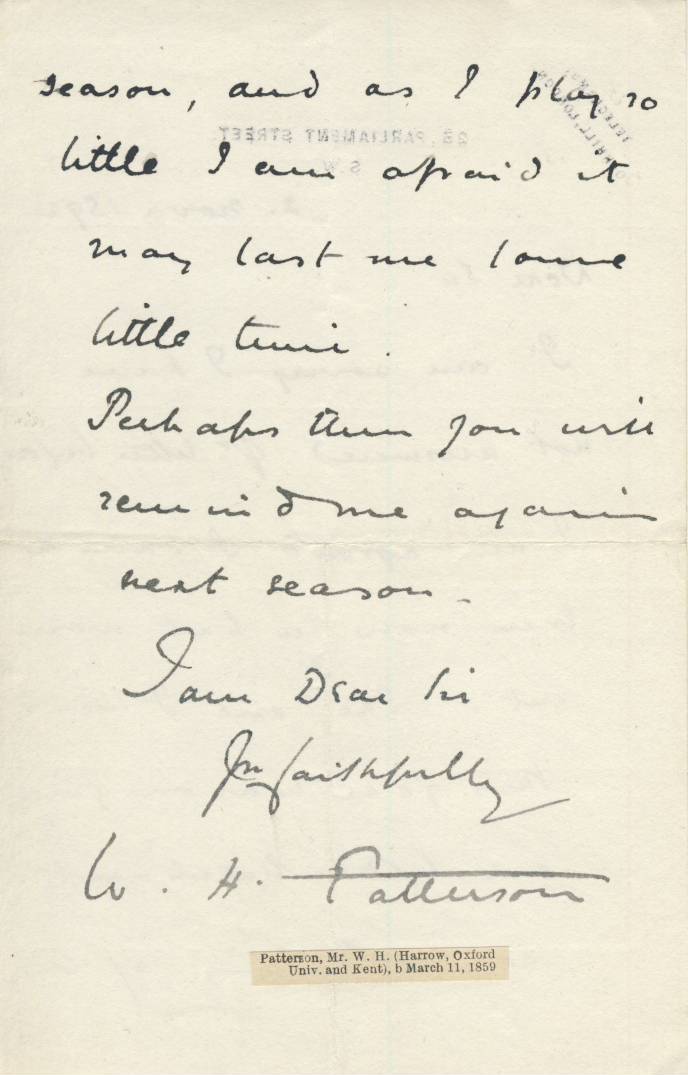 season, and as I play so
little I am afraid it
may last me some
little time.
Perhaps then you will
remind me again
next season.
I am Dear Sir
Yrs faithfully
W. H. Patterson
Patterson, Mr. W. H. (Harrow, Oxford
Univ. and Kent), b March 11, 1859
28, PARLIAMENT STREET,
S.W.